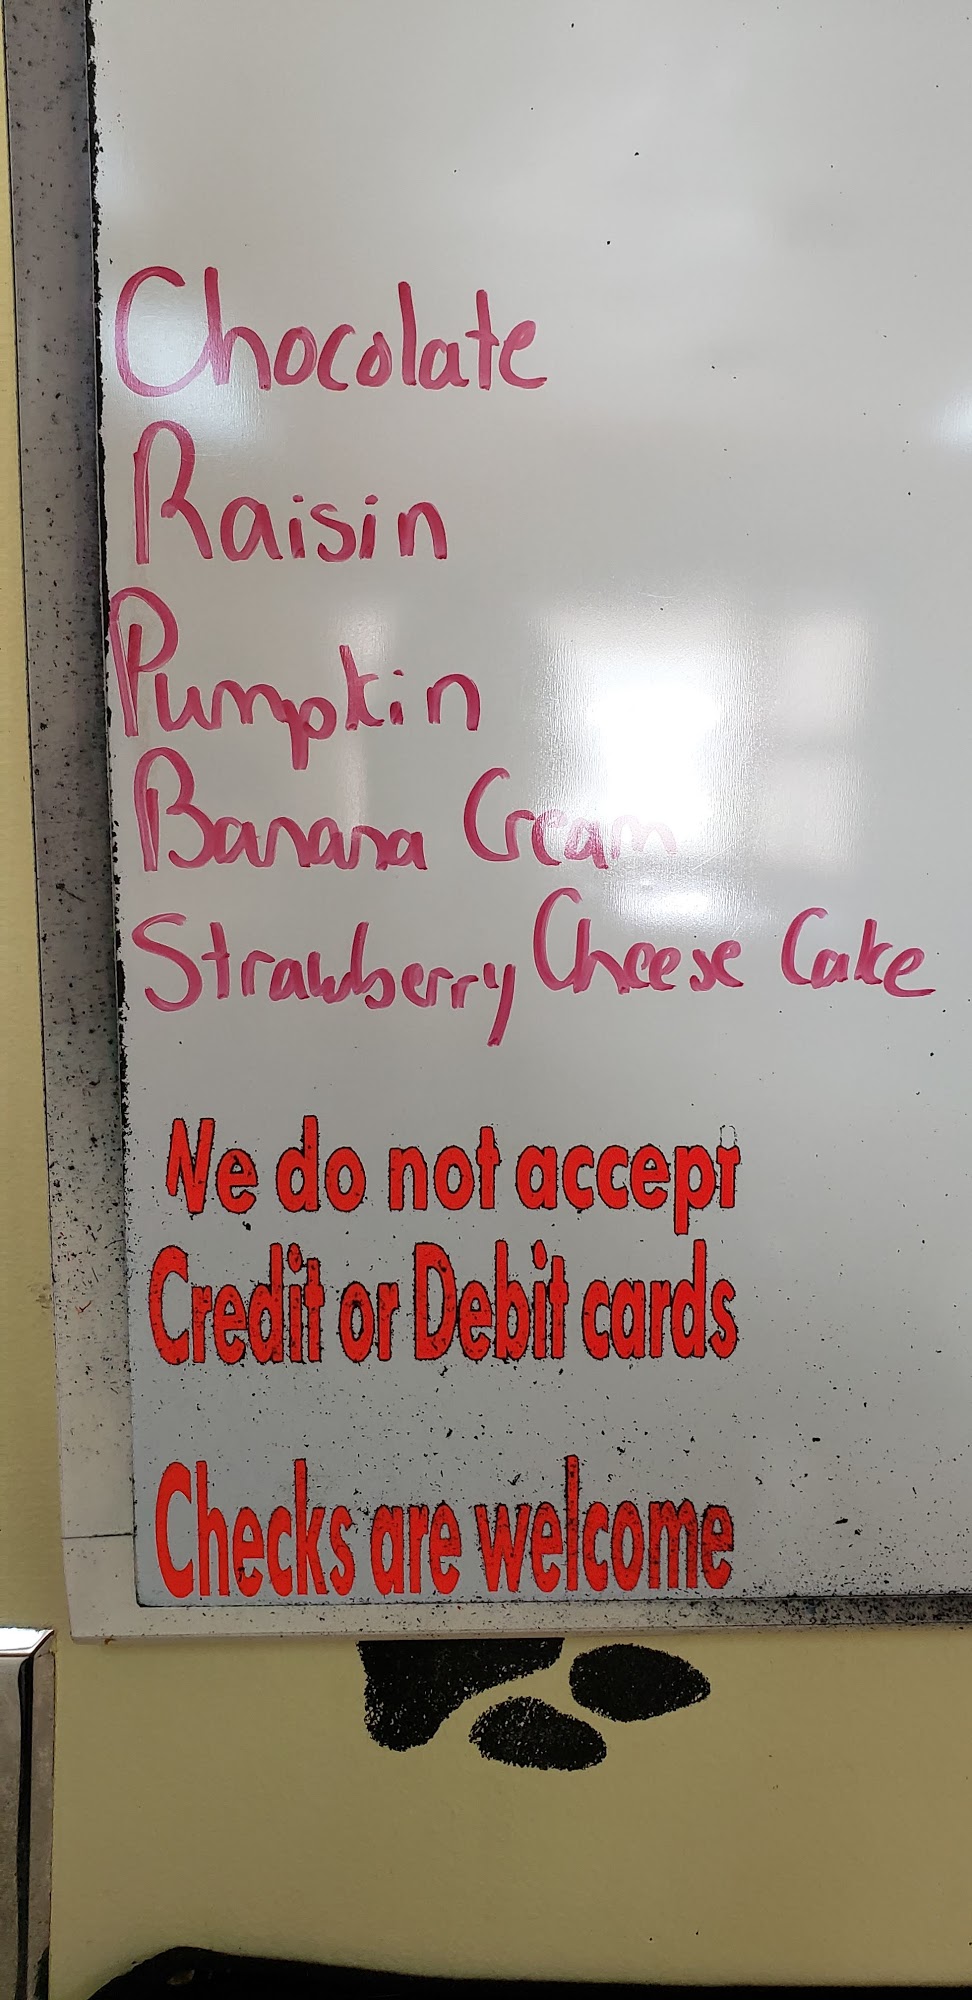 Chocolate
Raisin
Pumpkin
Banana Cream
Strawberry Cheese Cake
We do not accept
Credit or Debit cards
Checks are welcome